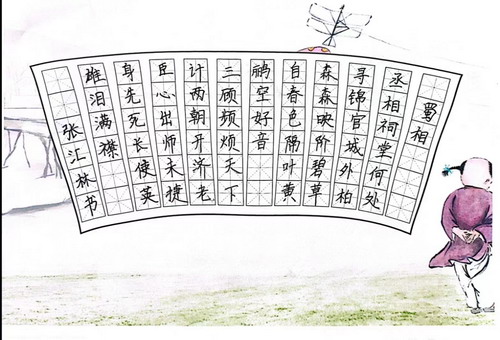 蜀相
丞相祠堂何处
寻锦官城外柏
森森映阶碧草
自春色隔叶黄
鹂空好音
三顾频烦天下
计两朝开济老
臣心出师未捷
身先死长使英
雄泪满襟
张汇林书